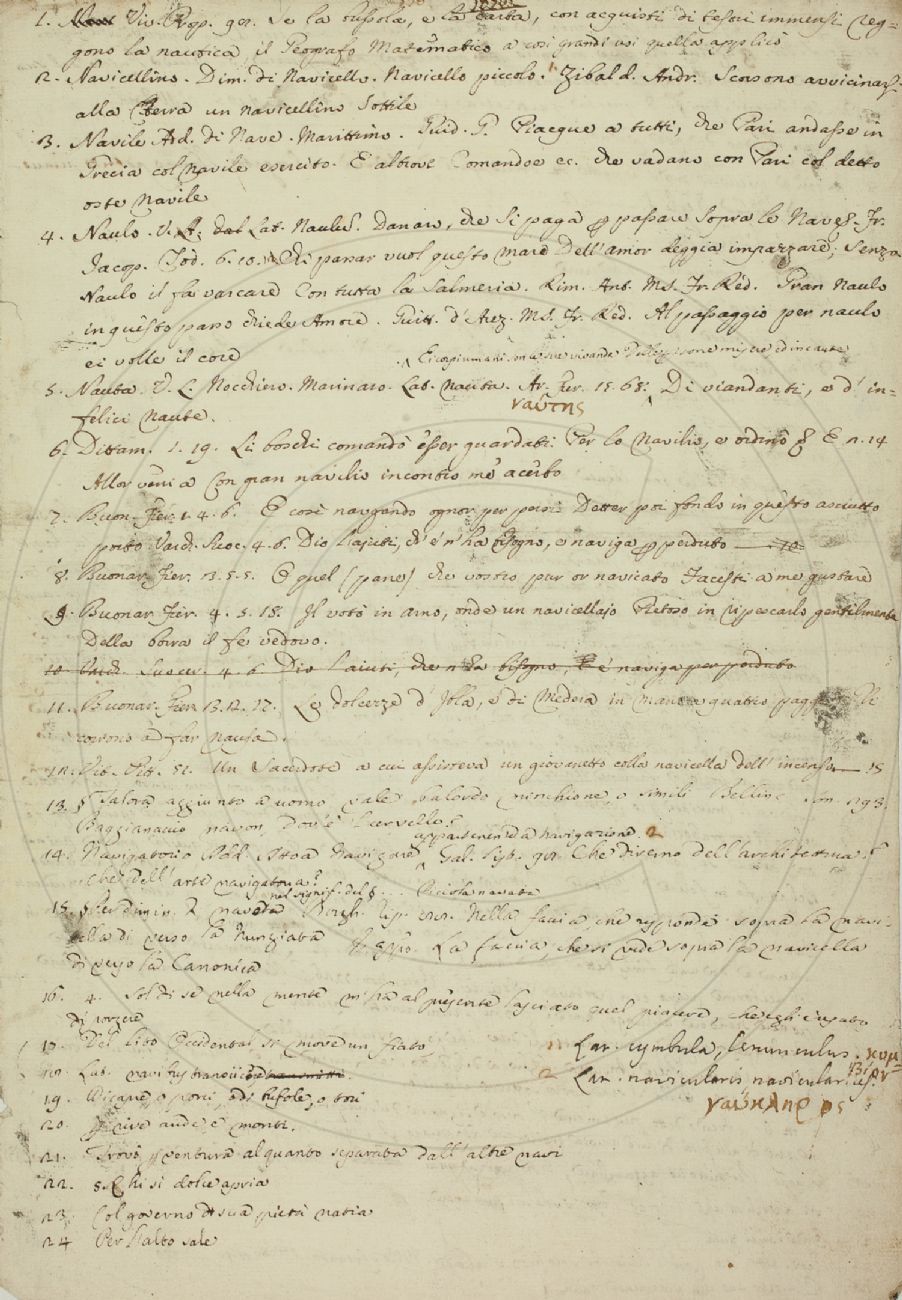 1. Viv. Prop. 901. Se la bussola, e la carta, con acquisti di tesori immensi reg=
gono la nautica, il Geografo Matematico a così grandi usi quella applicò
2. Navicellino. Dim. di Navicello. Navicello piccolo. Zibald. Andr. Scorsono avvicinarsi
alla terra un navicellino sottile
3. Navile Ad. di Nave. Marittimo. Guid. G. Piacque a tutti, che Pari andasse in
Grecia col navile esercito. E altrove Comandoe ec. che vadano con Pari col detto
oste navile
4. Naulo. V. A. dal Lat. Naulus. Danaro, che si paga p passare sopra le Navi. Fr.
Jacop. Tod. 6. 10. Chi passar vuol questo mare Dell'amor deggia impazzare, Senza
Naulo il fa varcare Con tutta la Salmeria. Rim. Ant. Ms. Fr. Red. Gran Naulo
in questo passo chiede Amore. Guitt. d'Arez. Ms. Fr. Red. Al passaggio per naulo
ei volle il core
5. Nauta. V. L. Nocchiero. Marinaro. Lat. nauta. Ar. Fur. 15. 65. Di viandanti, e d'in=
ναύτης
felici naute.
6. Dittam. 1. 19. Li boschi comandò esser guardati Per lo navilio, e ordinò E n. 14
Allor venia con gran navilio incontro me acerbo
7. Buon. Fier. 1. 4. 6. E così navigando ognor per poco Detter poi fondo in questo asciutto
porto Varch. Suoc. 4. 6. Dio l'ajuti, ch'e' n'ha bisogno, e naviga p perduto 10
8. Buonar. Fier. 3. 5. 5. E quel (pane) che vostro pur or navicato Facesti a me gustare
9. Buonar. Fier. 4. 5. 18. Il votò in Arno, onde un navicellajo Pietoso in ripescarlo gentilmente
Della borsa il fe vedovo.
10. Varch. Suocer. 4. 6. Dio l'aiuti, che n'ha bisogno, e naviga per perduto
11. Buonar. Fier. 3. 12. 17. Le dolcezze d'Jola, e di Medea in mano a quattro paggi
corrono a far nausa.
12. Vit. Pitt. 51. Un Sacerdote a cui assisteva un giovanetto colla navicella dell'incenso 15
13. § Talora aggiunto a uomo vale balordo minchione, o simili Bellinc. son. 293.
Baggianaccio navon, Dov'è 'l cervello?
appartenente a navigazione. 2
14. Navigatorio Add. Atto a Navigare Gal. Che diremo dell'architettura?
che dell'arte navigatoria?
nel signif. del §. ... Picciola navata
15. § Per dimin. di navata Borgh. Rip. Nella faccia, che risponde sopra la navi=
cella di verso la Nunziata E appr. La faccia, che si vede sopra la navicella
di verso la Canonica
16. 4. Sol di se nella mente m'ha al presente lasciato quel piacere, che egli è usato
di porgere
17. Del lito Occidental si move un fiato
Lat. cymbula, lenunculus. κυμ
βίον
18. Lat.
Lat. navicularis navicularius.
ναύκληρος
19. Micque, o porci, o di bufole, o tori
20. e rive ande, e monti.
21. Trovò p ventura alquanto separata dall'altre navi
22. s. Chi si dolce apria
23. Col governo di sua pietà natia
24 Per l'alto sale